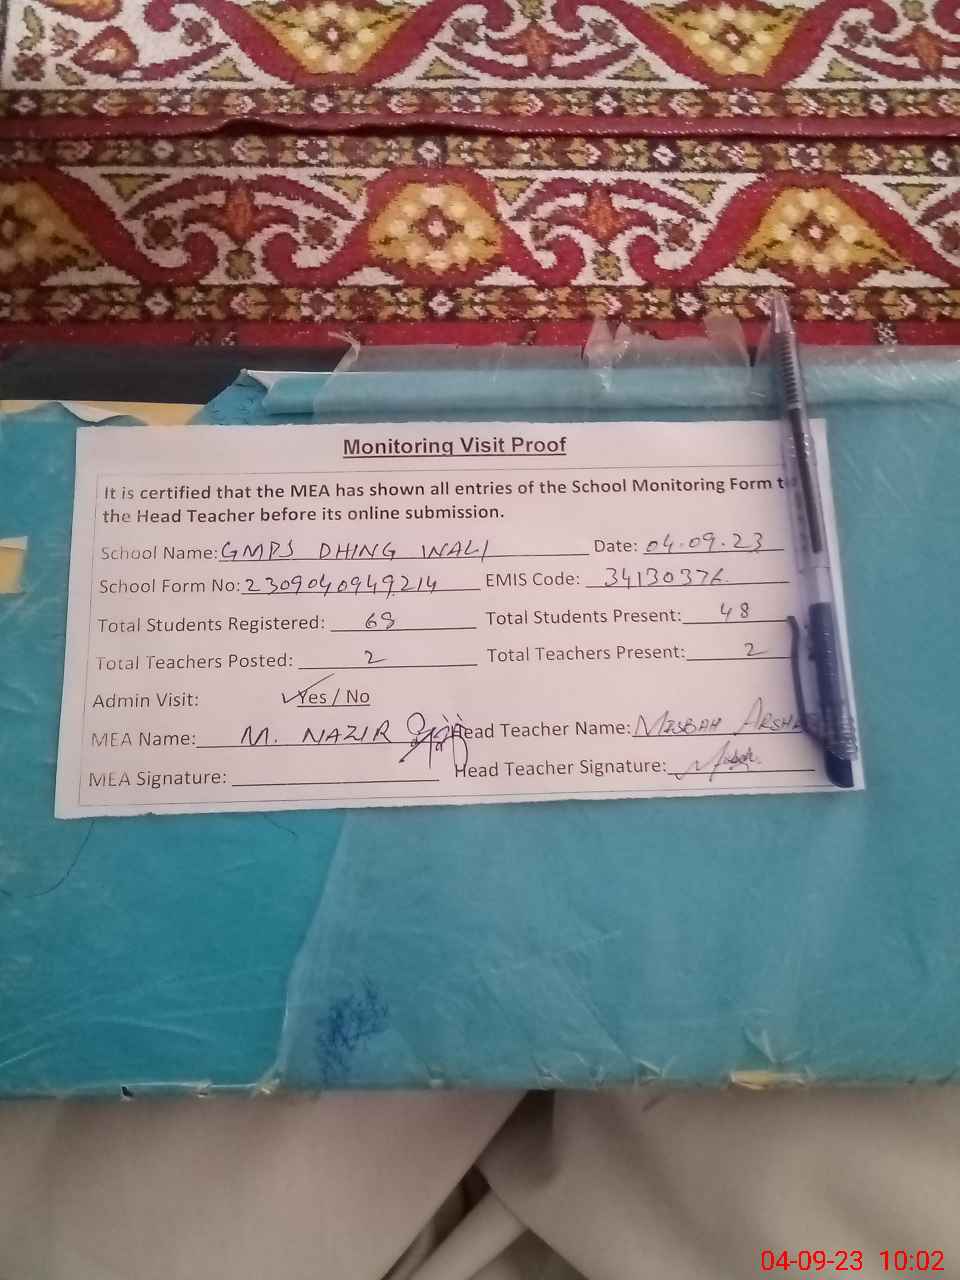 Monitoring Visit Proof
It is certified that the MEA has shown all entries of the School Monitoring Form
the Head Teacher before its online submission.
School Name: GMPS DHING WALI Date: 04.09.23
School Form No: 2309040949214 EMIS Code: 34130376
Total Students Registered: Total Students Present: 48
Total Teachers Posted: 2 Total Teachers Present: 2
Admin Visit: Yes / No
MEA Name: M. NAZIR Head Teacher Name: MISBAH
MEA Signature: Head Teacher Signature:
04-09-23 10:02